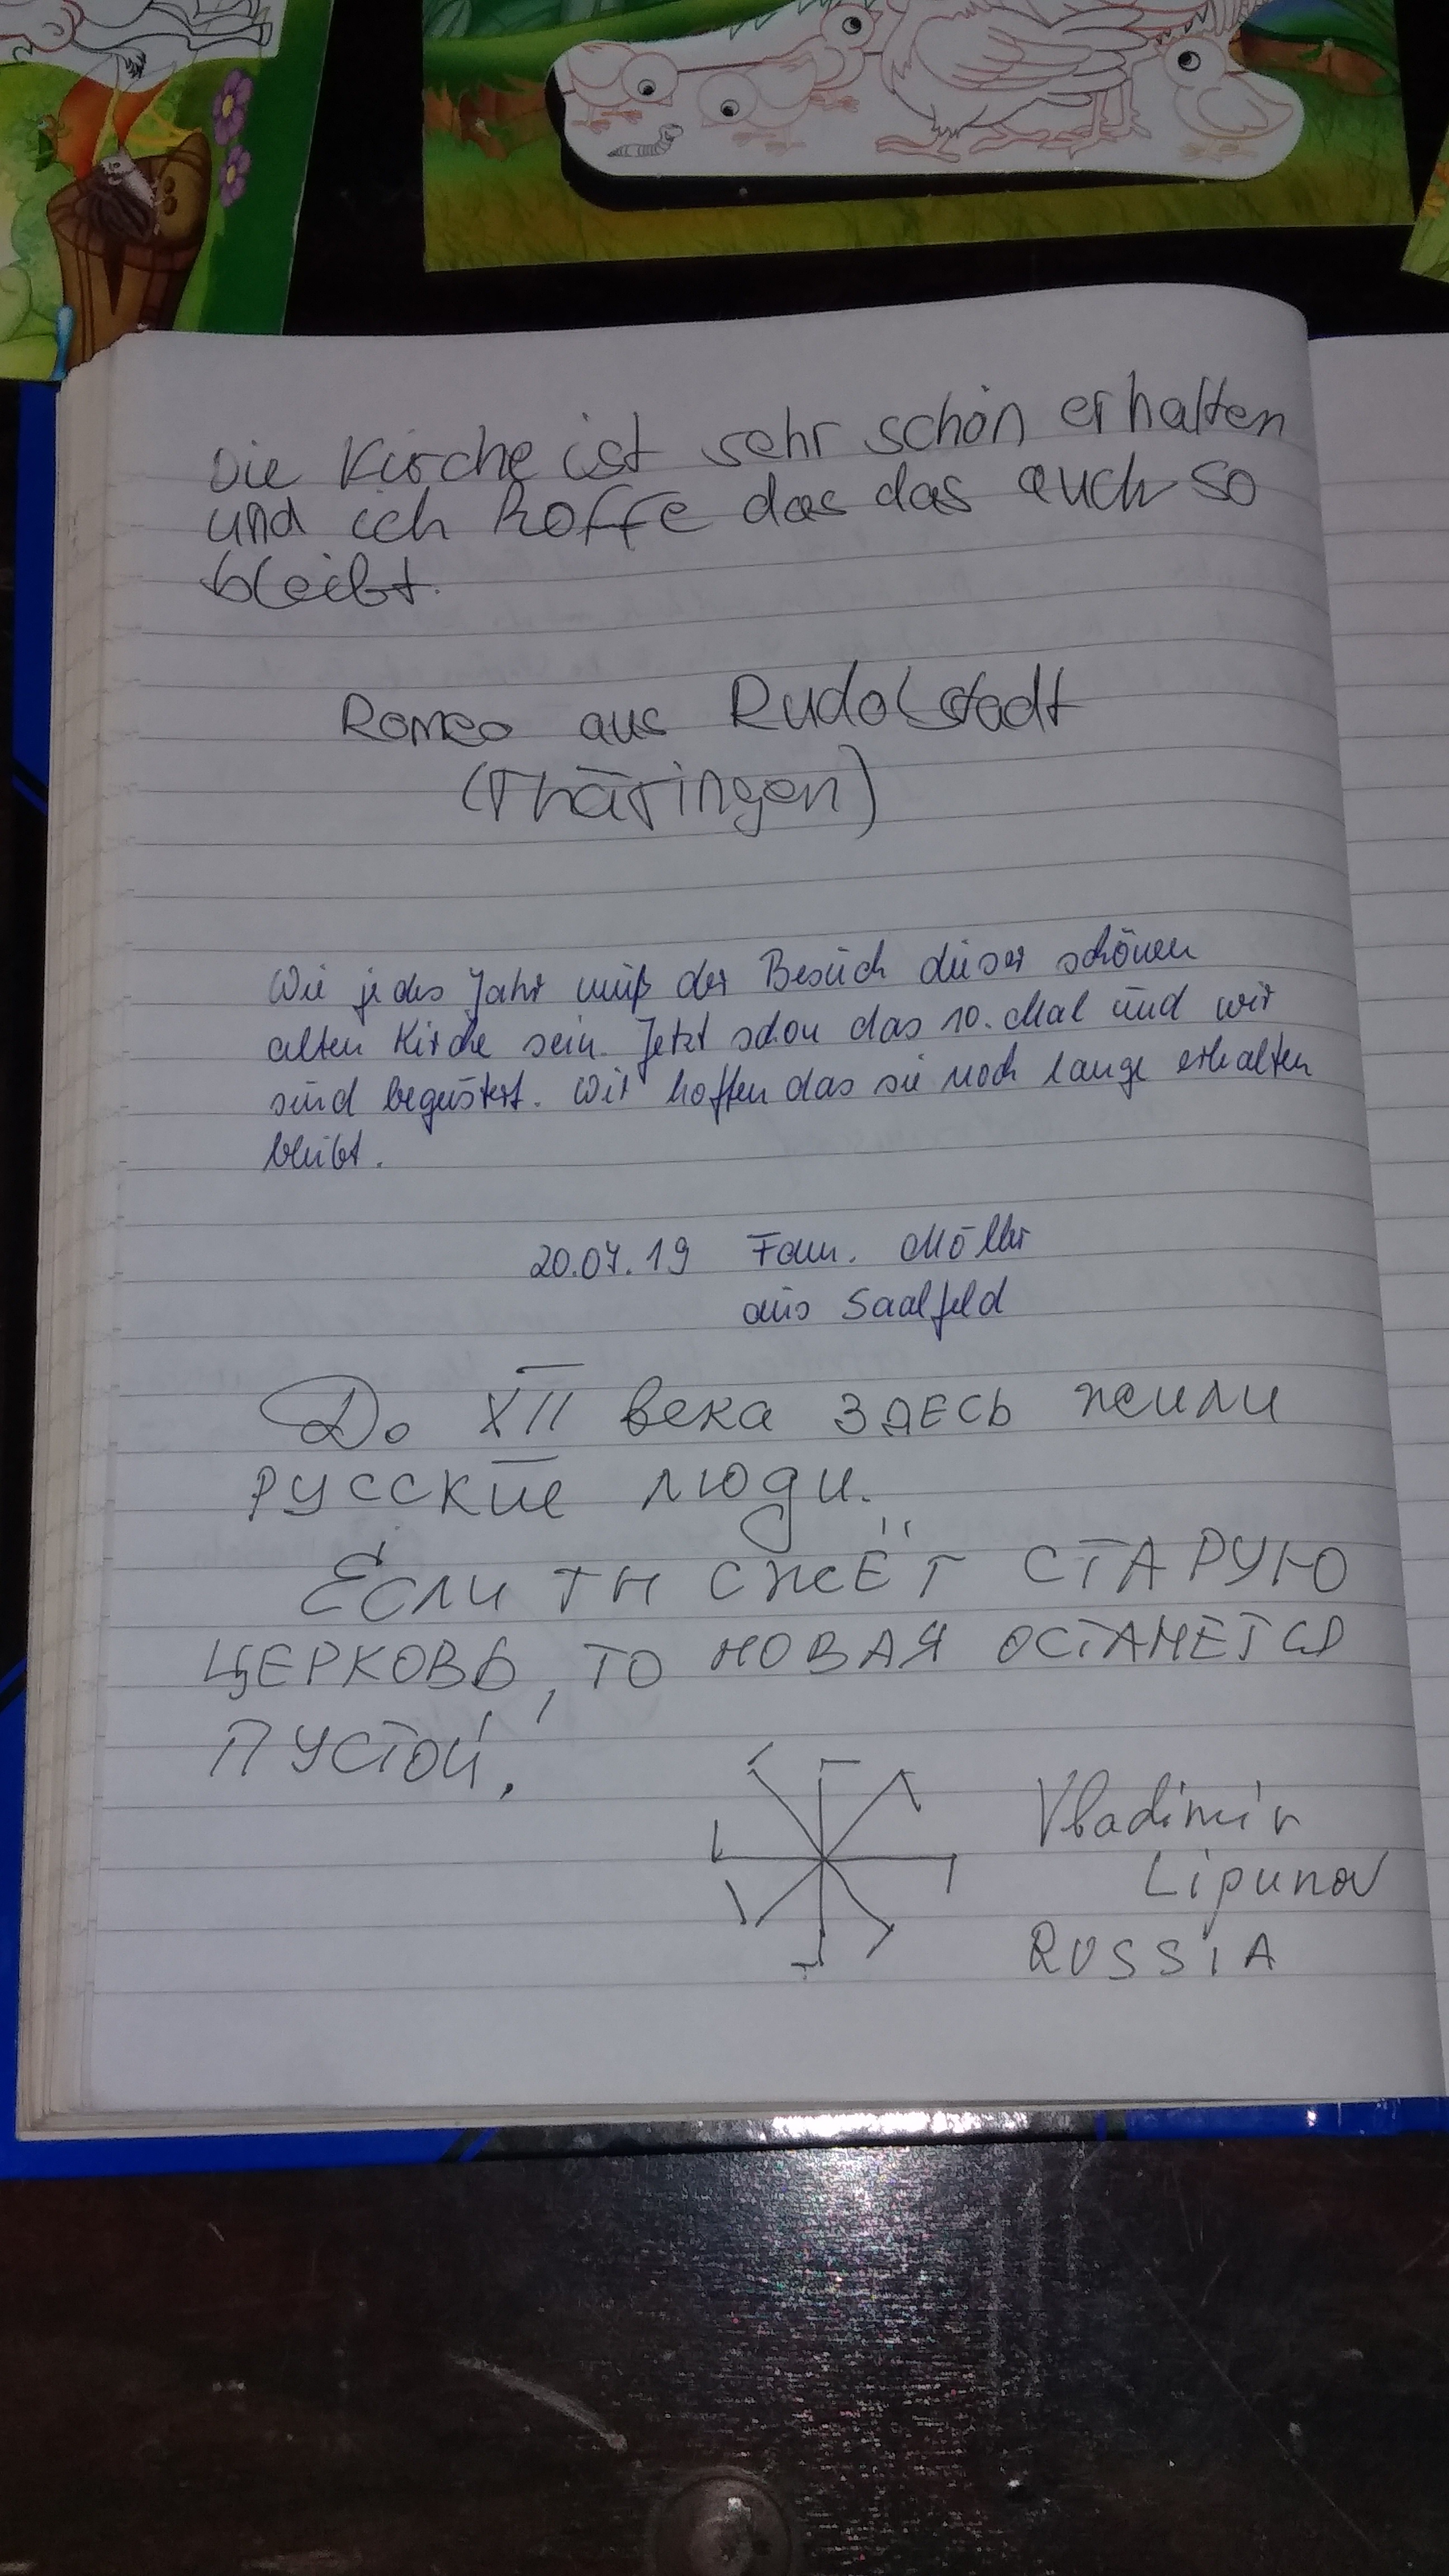 Die Kirche ist sehr schön erhalten
und ich hoffe das das auch so
bleibt.
Romeo aus Rudolstadt
(Thüringen)
Wie jedes Jahr muß der Besuch dieser schönen
alten Kirche sein. Jetzt schon das 10. Mal und wir
sind begeistert. Wir hoffen das sie noch lange erhalten
bleibt.
20.07.19 Fam. Möller
aus Saalfeld
До XII века здесь жили
русские люди.
Если ты сжёг СТАРУЮ
ЦЕРКОВЬ, ТО НОВАЯ ОСТАНЕТСЯ
ПУСТОЙ.
Vladimir
Lipunov
RUSSIA